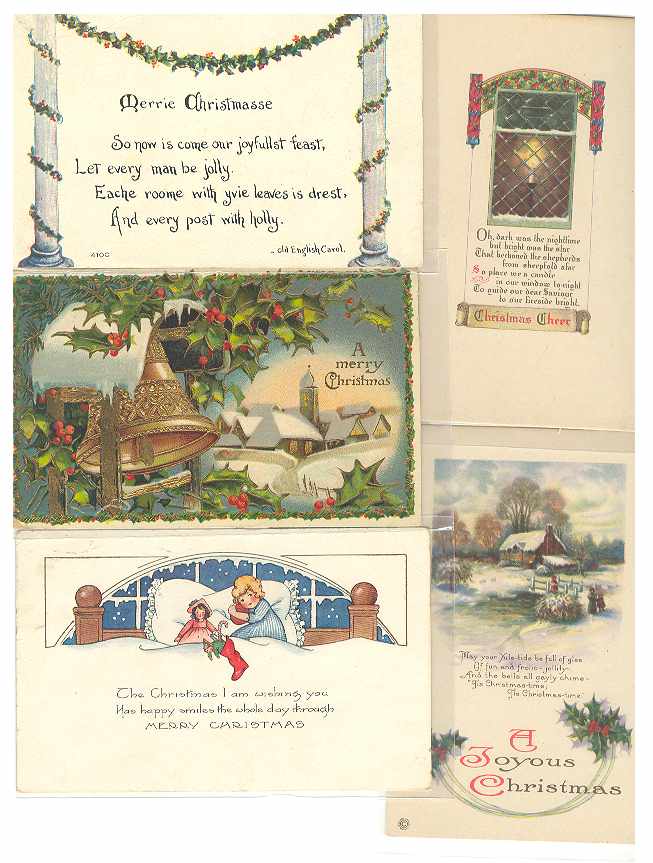 Merrie Christmasse
So now is come our joyfullst feast,
Let every man be jolly.
Eache roome with yvie leaves is drest,
And every post with holly.
4100
- old English Carol.
A
merry
Christmas
The Christmas I am wishing you
Has happy smiles the whole day through
MERRY CHRISTMAS
Oh, dark was the nighttime
but bright was the star
That beckoned the shepherds
from sheepfold afar
So place we a candle
in our window to-night
To guide our dear Saviour
to our fireside bright.
Christmas Cheer
May your Yule-tide be full of glee
Of fun and frolic-jollity-
And the bells all gayly chime-
'Tis Christmas-time,
'Tis Christmas-time
A
Joyous
Christmas
©